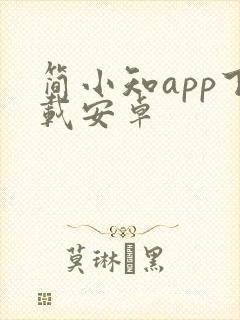 简小知app下
载安卓
莫琳 黑